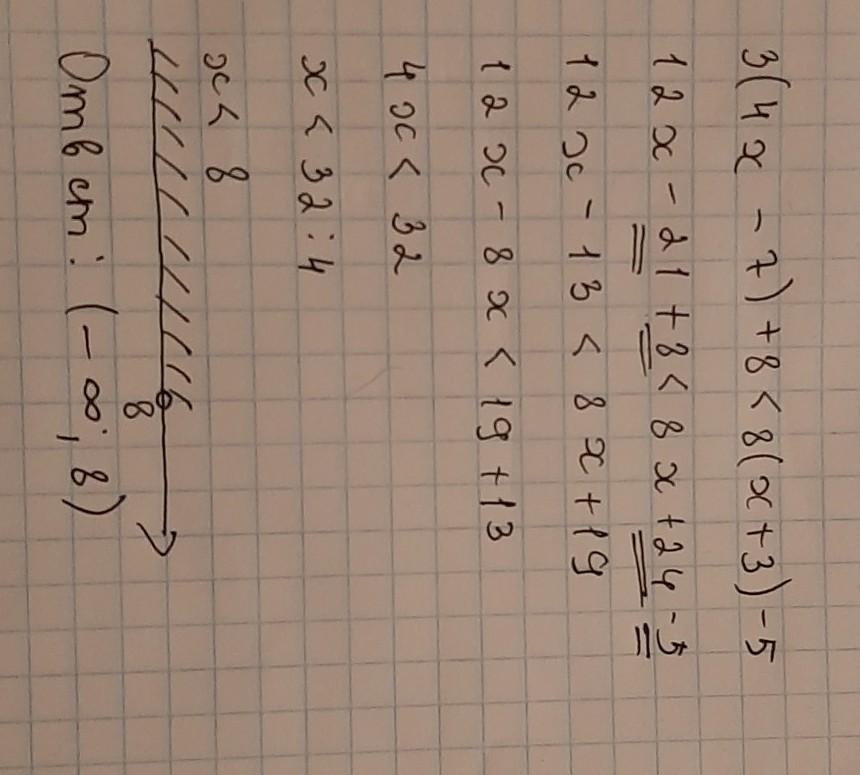 3(4x - 7) + 8 < 8(x + 3) - 5
12x - 21 + 8 < 8x + 24 - 5
12x - 13 < 8x + 19
12x - 8x < 19 + 13
4x < 32
x < 32 : 4
x < 8
8
Ответ: (-∞; 8)